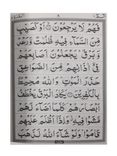 فَهُمْ لَا يَرْجِعُونَ ۝ أَوْ كَصَيِّبٍ
مِّنَ السَّمَاءِ فِيهِ ظُلُمَاتٌ وَّرَعْدٌ
وَّبَرْقٌ يَجْعَلُونَ أَصَابِعَهُمْ
فِي آذَانِهِم مِّنَ الصَّوَاعِقِ
حَذَرَ الْمَوْتِ وَاللَّهُ مُحِيطٌ
بِالْكَافِرِينَ ۝ يَكَادُ الْبَرْقُ يَخْطَفُ
أَبْصَارَهُمْ كُلَّمَا أَضَاءَ لَهُم
مَّشَوْا فِيهِ وَإِذَا أَظْلَمَ عَلَيْهِمْ
قَامُوا وَلَوْ شَاءَ اللَّهُ لَذَهَبَ